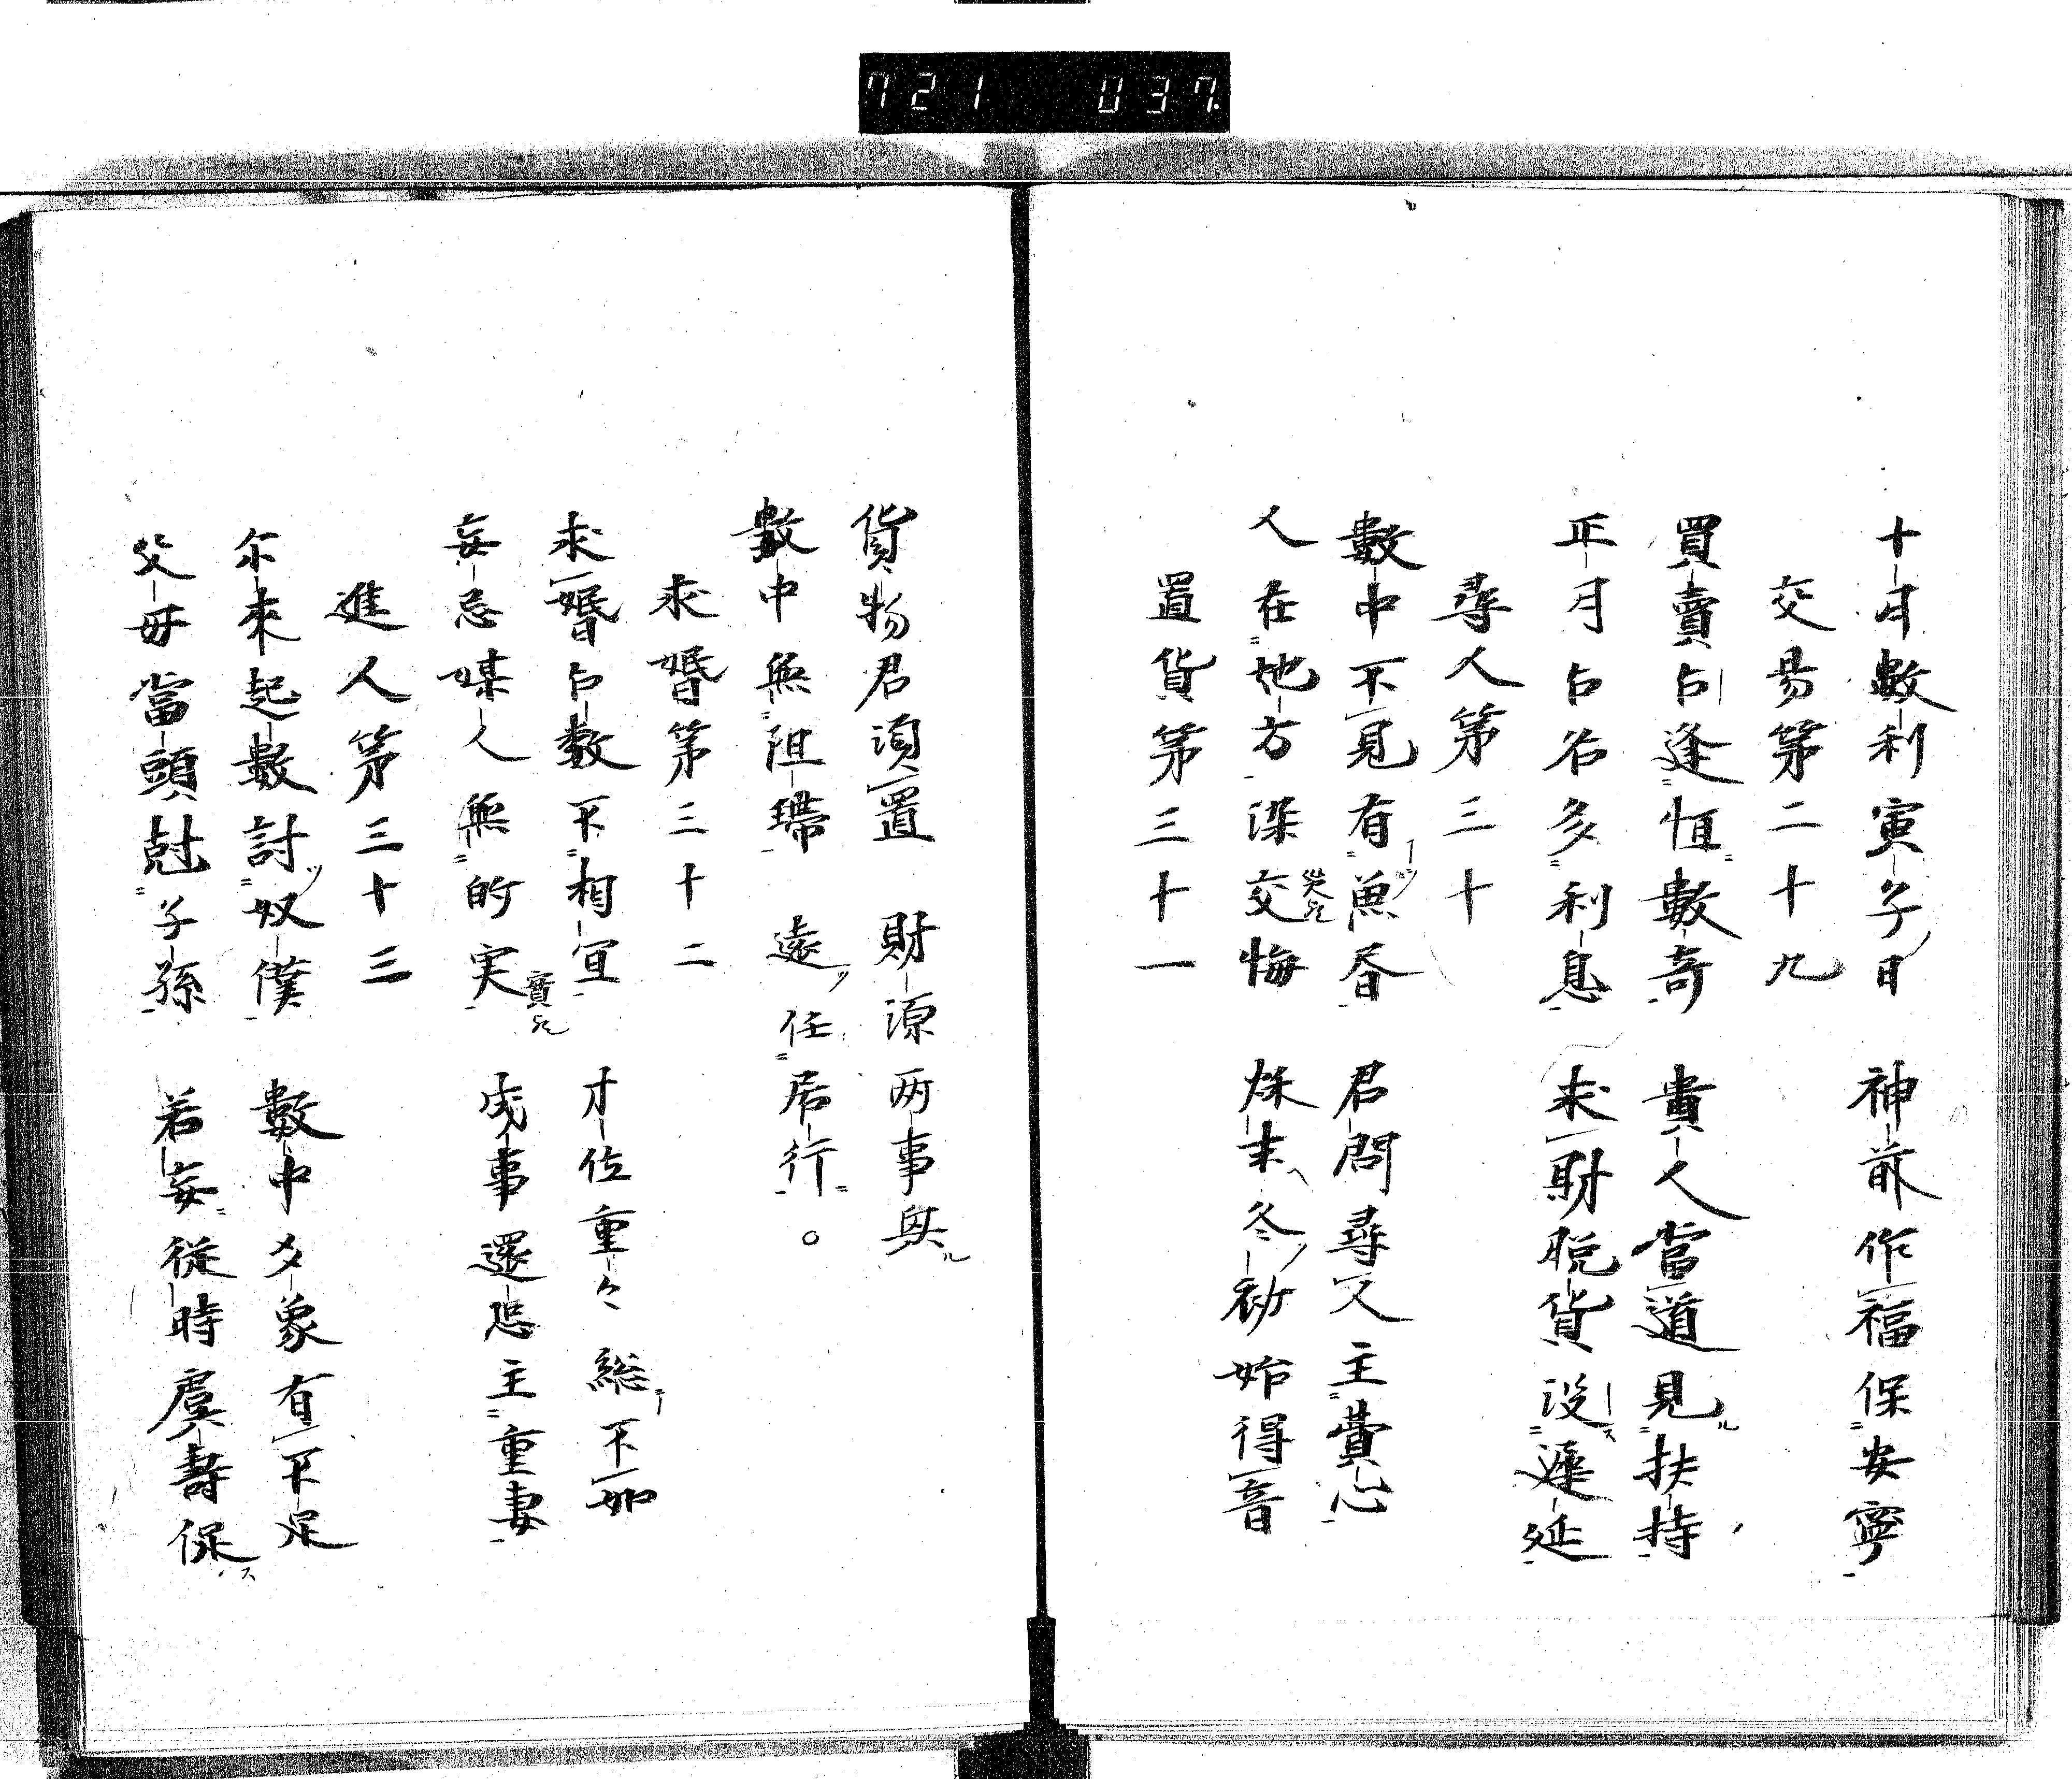 721 037
十月數利寅子日 神前作福保安寧
交易第二十九
買賣占逢恒數奇 貴人當道見扶持
正月占名多利息 求財脱貨没遲延
尋人第三十
數中不見有魚昏 君問尋人主賞心
人在他方深交悔 秌末冬初始得音
置貨第三十一
貨物君須置 財源両事興
數中無阻滯 遠任君行。
求婚第三十二
求婚占数不相宜 才位重々総不如
妄忌媒人無的実 成事還恐主重妻
進人第三十三
尓來起數討奴僕 數中夕象有不足
父母當頭尅子孫 若妄従時虞壽促